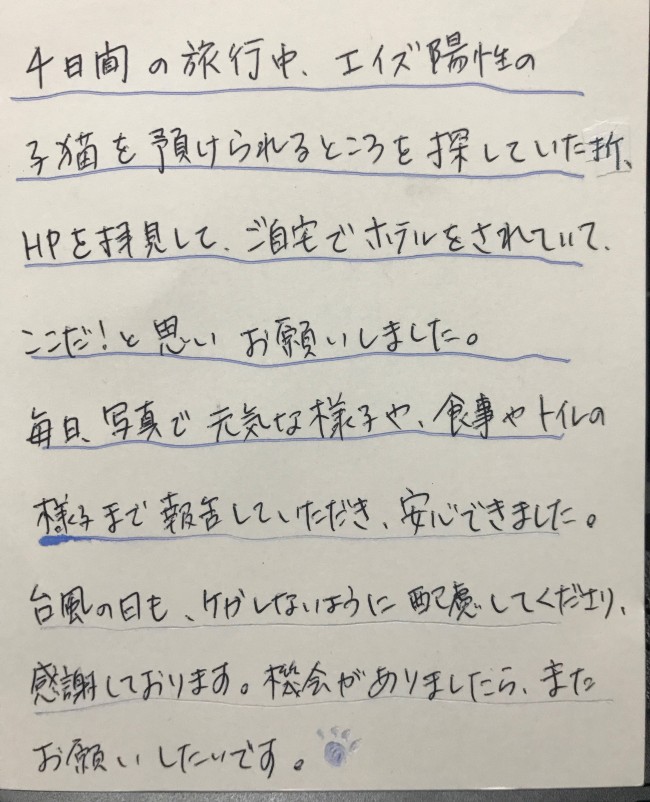 4日間の旅行中、エイズ陽性の
子猫を預けられるところを探していた折、
HPを拝見して、ご自宅でホテルをされていて、
ここだ！と思いお願いしました。
毎日、写真で元気な様子や、食事やトイレの
様子まで報告していただき、安心できました。
台風の日も、ケガしないように配慮してくださり、
感謝しております。機会がありましたら、また
お願いしたいです。